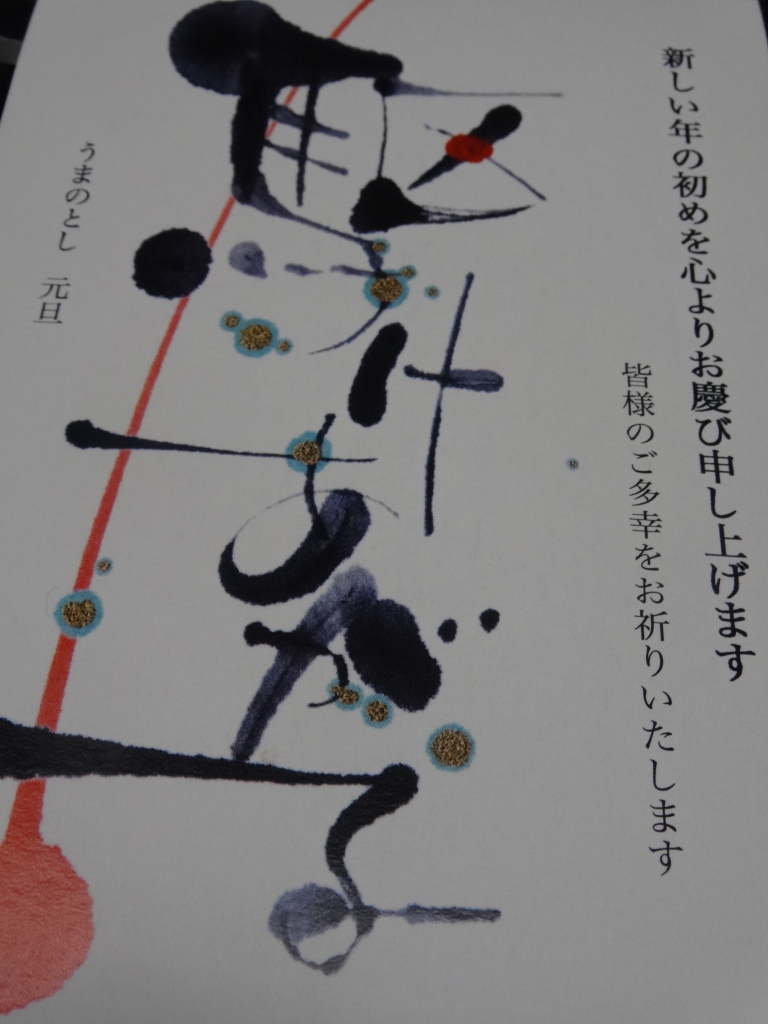 新しい年の初めを心よりお慶び申し上げます
皆様のご多幸をお祈りいたします
駆けあがる
うまのとし　元旦